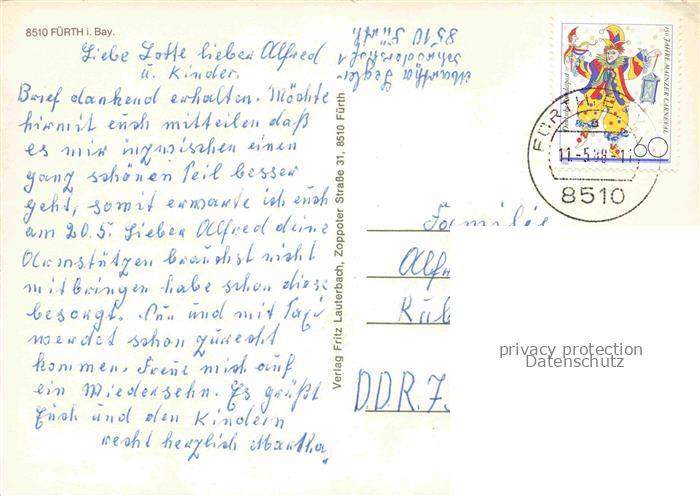 8510 FÜRTH i. Bay.
Liebe Lotte lieber Alfred
u. Kinder.
Brief dankend erhalten. Möchte
hiermit euch mitteilen daß
es mir inzwischen einen
ganz schönen Teil besser
geht, somit erwarte ich euch
am 20.5. Lieber Alfred deine
Armstützen brauchst nicht
mitbringen habe schon diese
besorgt. Nun und mit Taxi
werdet schon zurecht
kommen. Freue mich auf
ein Wiedersehn. Es grüßt
Euch und den Kindern
recht herzlich Martha
Verlag Fritz Lauterbach, Zoppoter Straße 31, 8510 Fürth
Martha
8510 Fürth
150 JAHRE MAINZER CARNEVAL
60
FÜRTH
11-5.88-17
8510
Familie
Alf
Rub
DDR. 7
privacy protection
Datenschutz